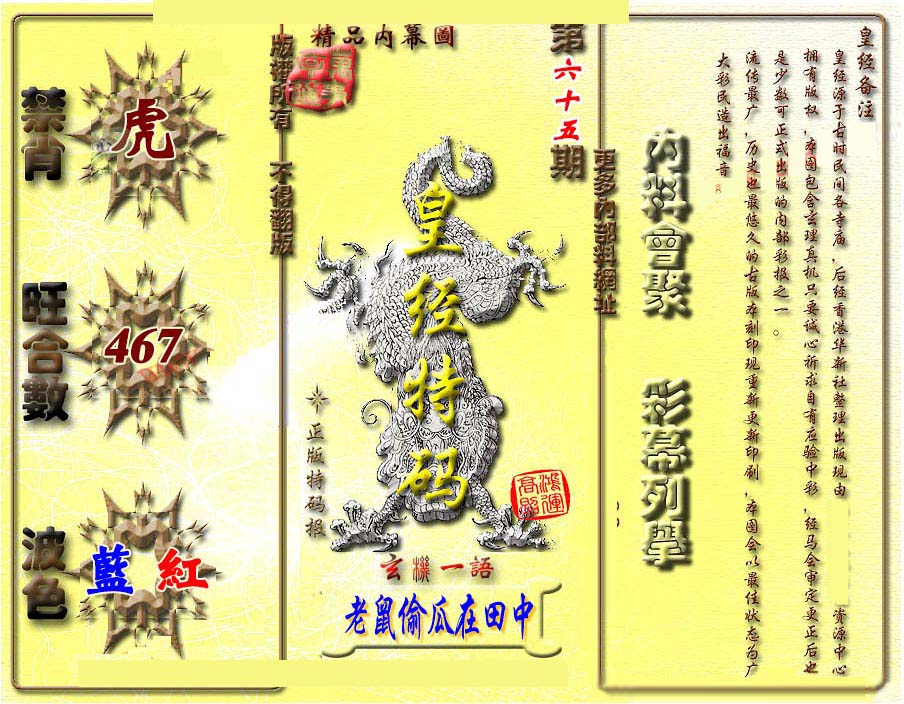 禁肖
虎
旺合數
467
波色
藍 紅
版權所有 不得翻版
精品内幕圖
第六十五期
皇经特码
正版特码报
鴻運高照
玄機一語
老鼠偷瓜在田中
更多内部料網址
内料會聚 彩幕列舉
皇经备注
皇经源于古时民间各寺庙,后经香港华新社整理出版现由 资源中心
拥有版权,本图包含玄理真机只要诚心祈求自有应验中彩,经马会审定更正后也
是少数可正式出版的内部彩报之一。
流传最广,历史也最悠久的古版本刻印现重新更新印刷,本图会以最佳状态为广
大彩民造出福音。